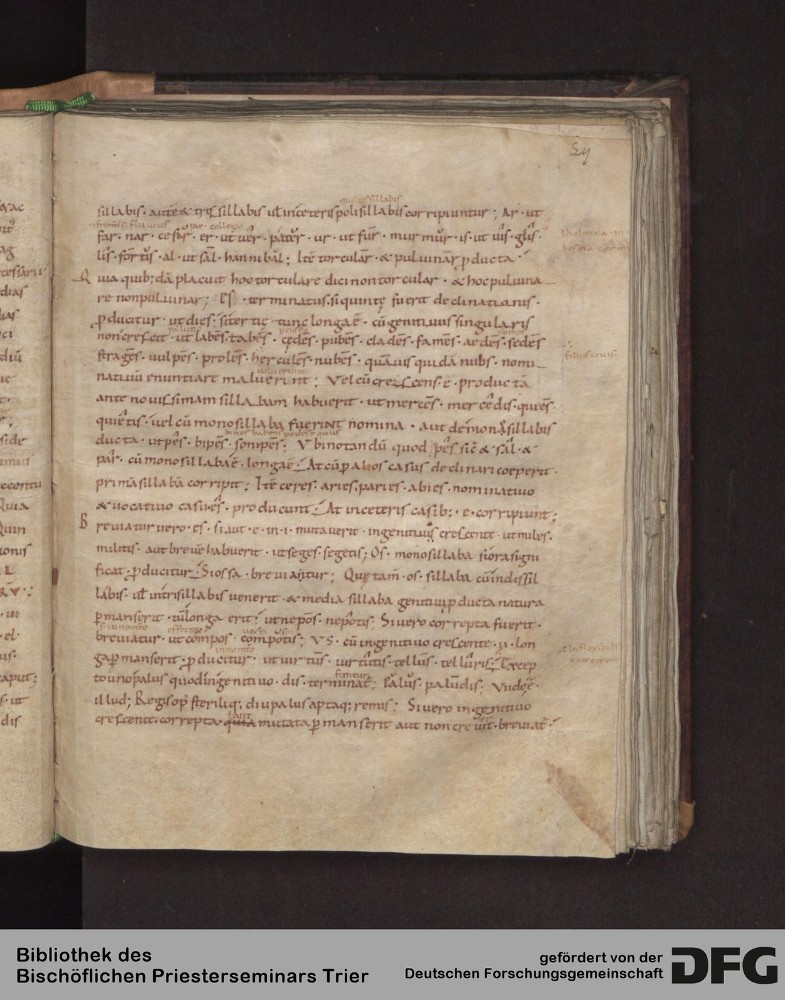 sillabis · aut & trissillabis ut inceteris polisillabis corripiuntur ; Ar · ut
far · nar · cesar · er · ut uer · pater · ur · ut fur · murmur · is · ut uis · glis ·
lis · fortis · al · ut sal · hannibal ; Ite torcular · & puluinar ꝓducta ·
Quia quib; dā placuit hoc torculare dici non torcular · & hoc puluina
re non puluinar ; Es · terminatus si quinte fuerit declinationis ·
ꝓducitur · ut dies · si tertie tunc longa ē · cū genitiuus singularis
non crescit · ut labes · tabes · cędes · pubes · clades · fames · aedes · sedes
strages · uulpes · proles · hercules · nubes · quāuis quidā nubs · nomi
natiuū enuntiare maluerint ; Vel cū crescens · ē · producta
ante nouissimam sillabam habuerit · ut merces · mercedis · quies
quietis · uel cū monosillaba fuerint nomina · aut de monosillabis
ducta · ut pes · bipes · sonipes ; Vbi notandū quod pes sic & sal · &
par · cū monosillaba ē · longa ē · At cū ꝑ alios casus declinari coeperit ·
primā sillabā corripit ; Ite ceres · aries · paries · abies · nominatiuo
& uocatiuo casu · es · producunt ; At inceteris casib; · e · corripiunt ;
Breuiatur uero · es · si aut · e · in · i · mutauerit · ingenitiuo crescente · ut miles ·
militis · aut breuē habuerit · ut seges · segetis ; Os · monosillaba si ora signi
ficat · ꝓducitur · Si ossa · breuiantur ; Quę tam · os · sillaba cū indissil
labis · ut intrisillabis uenerit · & media sillaba genitiui ꝓducta natura
ꝑmanserit · tū longa erit ; ut nepos · nepotis ; Si uero correpta fuerit ·
breuiatur · ut compos · compotis ; VS · cū ingenitiuo crescente · u · lon
ga ꝑmanserit · ꝓducitur · ut uirtus · uirtutis · tellus · telluris ; Excep
to uno palus quod ingenitiuo · dis · terminat ; Palus · paludis · Vnde ē ·
illud ; Regis op sterilisq; diu palus aptaq; remis ; Si uero ingenitiuo
crescente · correpta · quia mutata ꝑmanserit aut non creuit · breuiat ·
Bibliothek des
Bischöflichen Priesterseminars Trier
gefördert von der
Deutschen Forschungsgemeinschaft
DFG